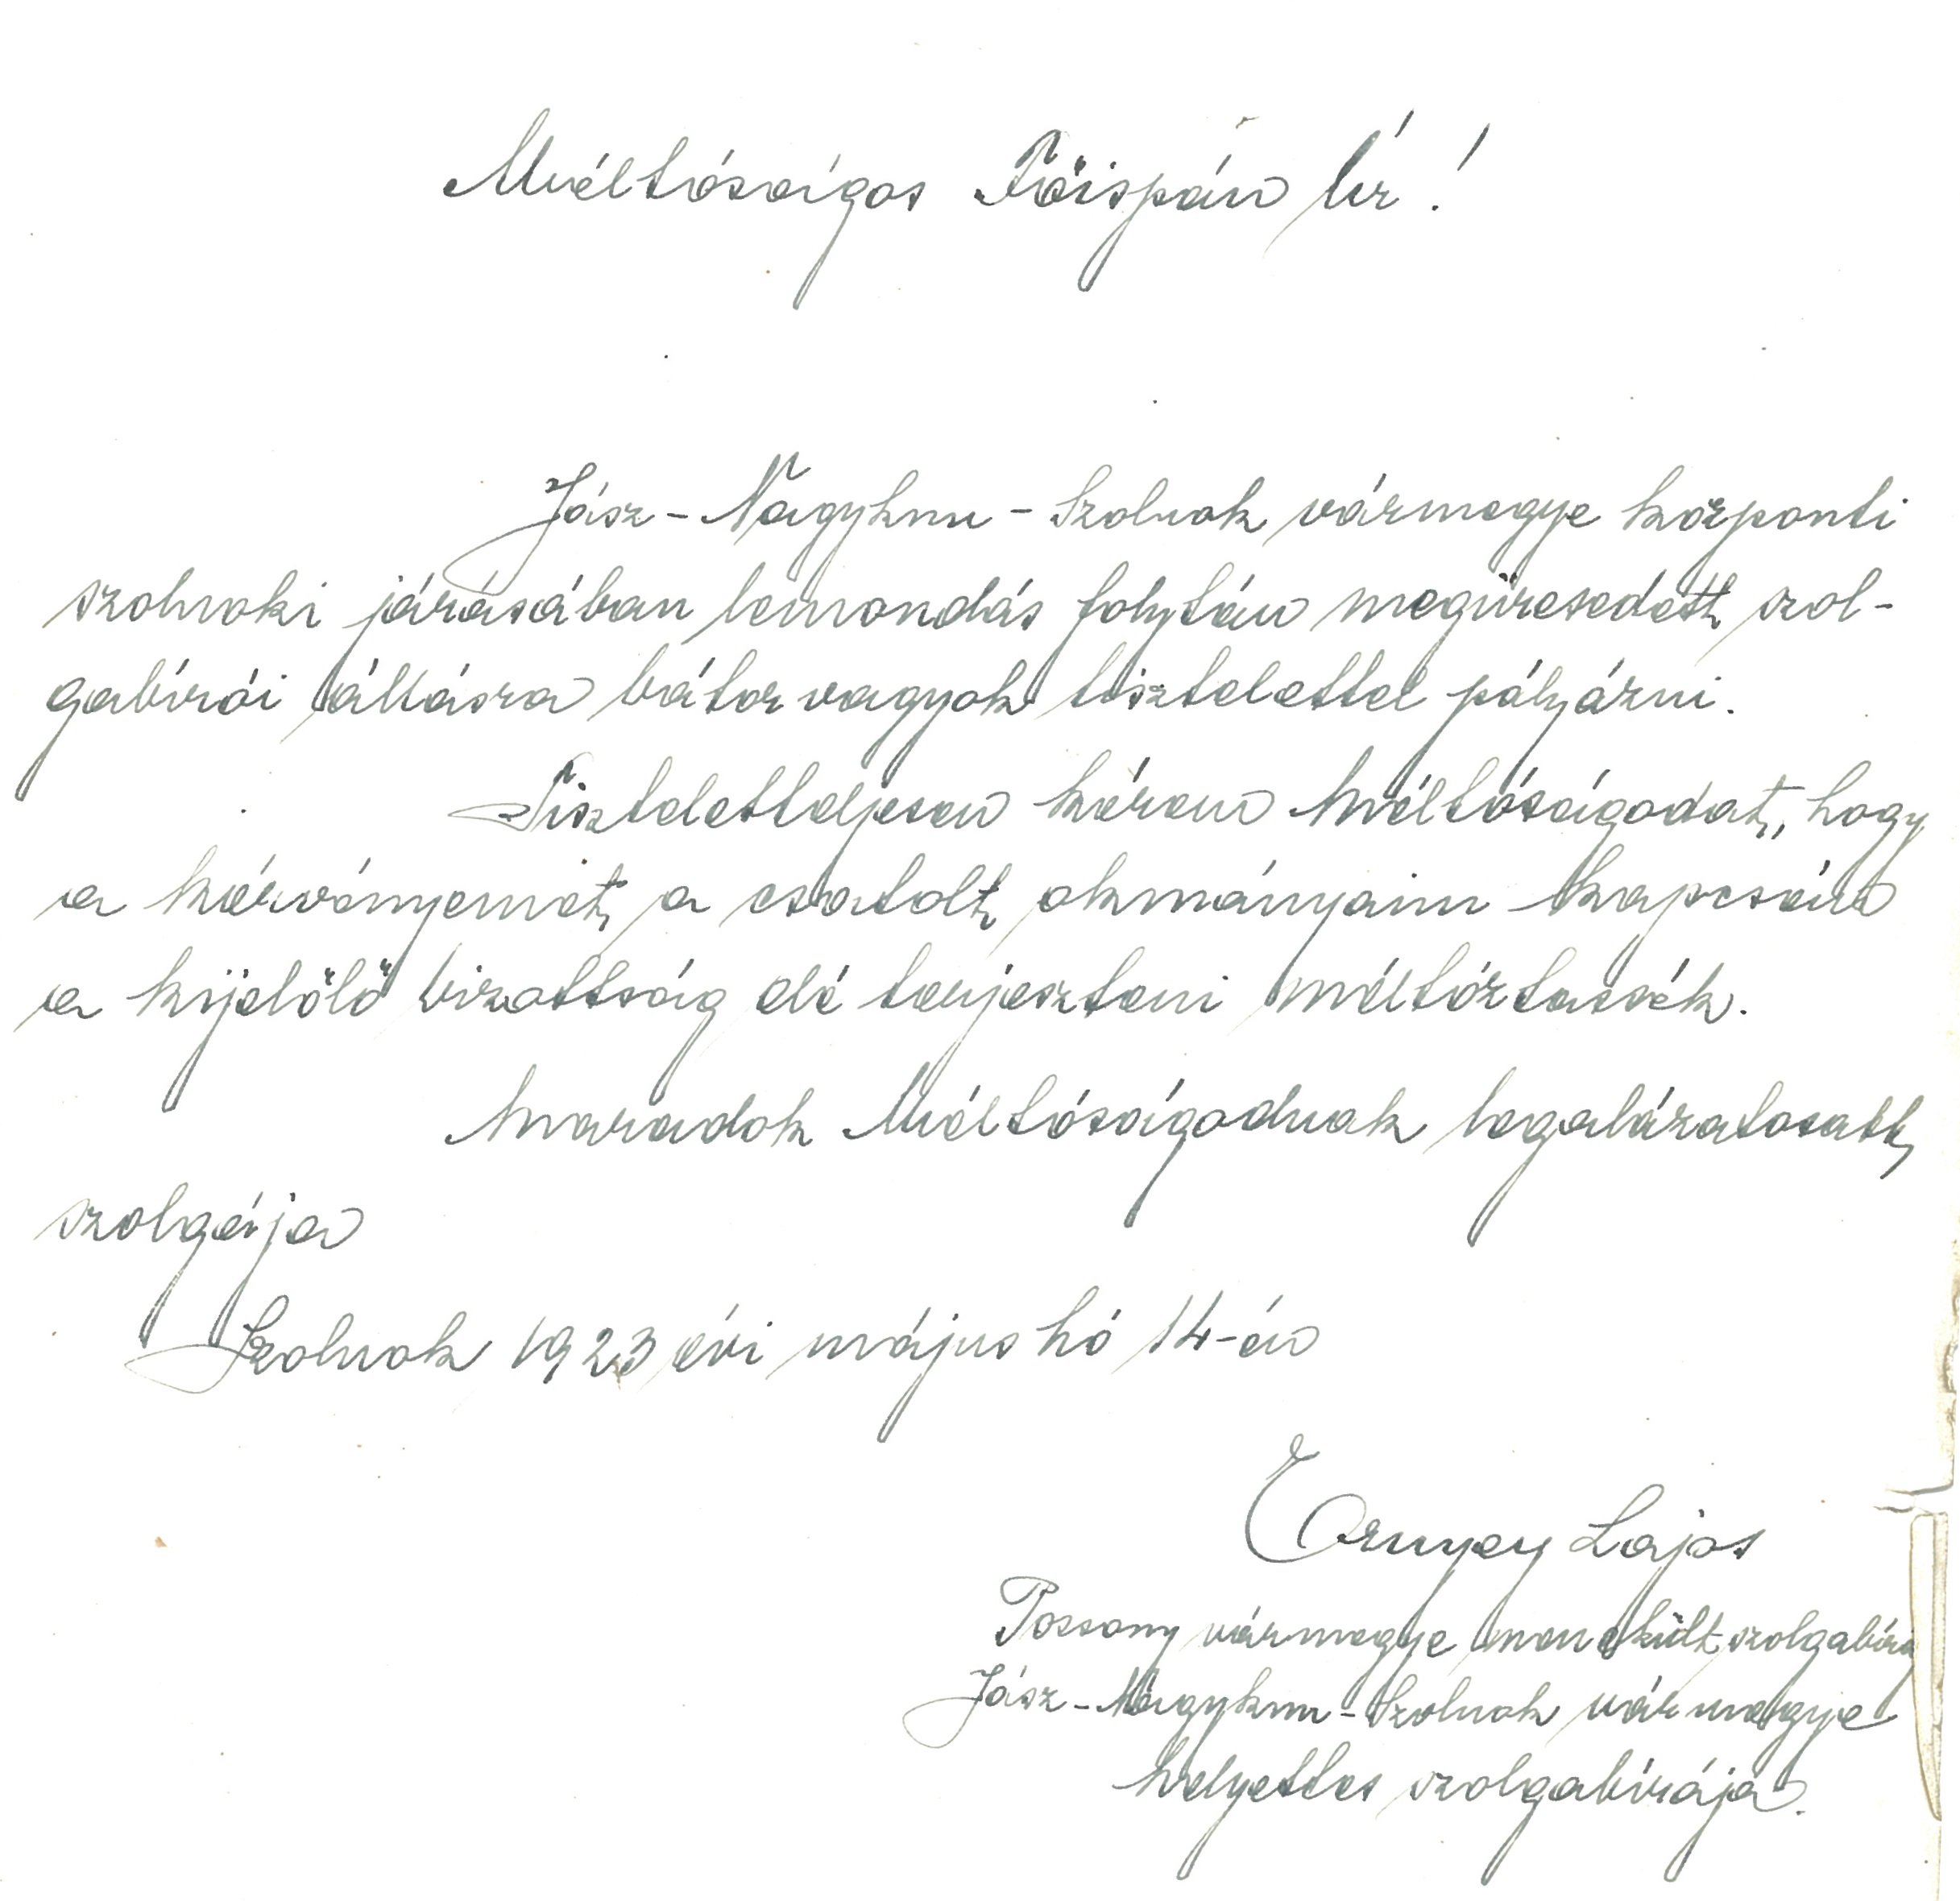 Méltóságos Főispán Úr!
Jász-Nagykun-Szolnok vármegye központi
szolnoki járásában lemondás folytán megüresedett szol-
gabírói állásra bátor vagyok tisztelettel pályázni.
Tiszteletteljesen kérem Méltóságodat, hogy
a kérvényemet a csatolt okmányaim kapcsán
a kijelölő bizottság elé terjeszteni méltóztassék.
Maradok Méltóságodnak legalázatosabb
szolgája
Szolnok 1923 évi május hó 14-én
Ernyey Lajos
Pozsony vármegye menekült szolgabíró
Jász-Nagykun-Szolnok vármegye
helyettes szolgabírája.